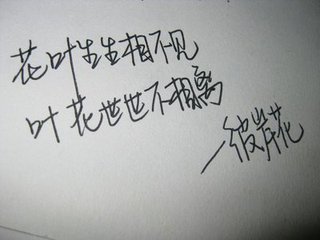 花叶生生相不见
叶花世世不相离
—彼岸花